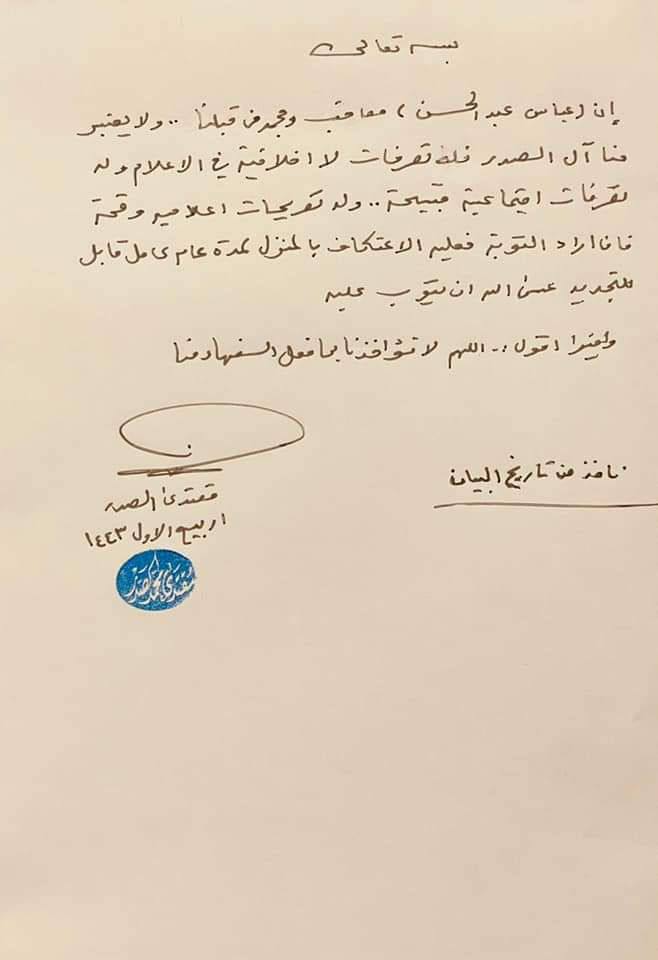 بسمه تعالى
إن (عباس عبد الحسن) معاقب ومجمد من قبلنا .. ولا يعتبر
منا آل الصدر فله تصرفات لا اخلاقية في الاعلام وله
تصرفات اجتماعية قبيحة .. وله تصريحات اعلاميه وقحة
فان اراد التوبة فعليه الاعتكاف بالمنزل لمدة عام كامل قابل
للتجديد عسى الله ان يتوب عليه
واخيرا اقول :- اللهم لا تؤاخذنا بما فعل السفهاء منا
نافذ من تاريخ البيان
مقتدى الصدر
١ ربيع الاول ١٤٤٣
مقتدى محمد صدر